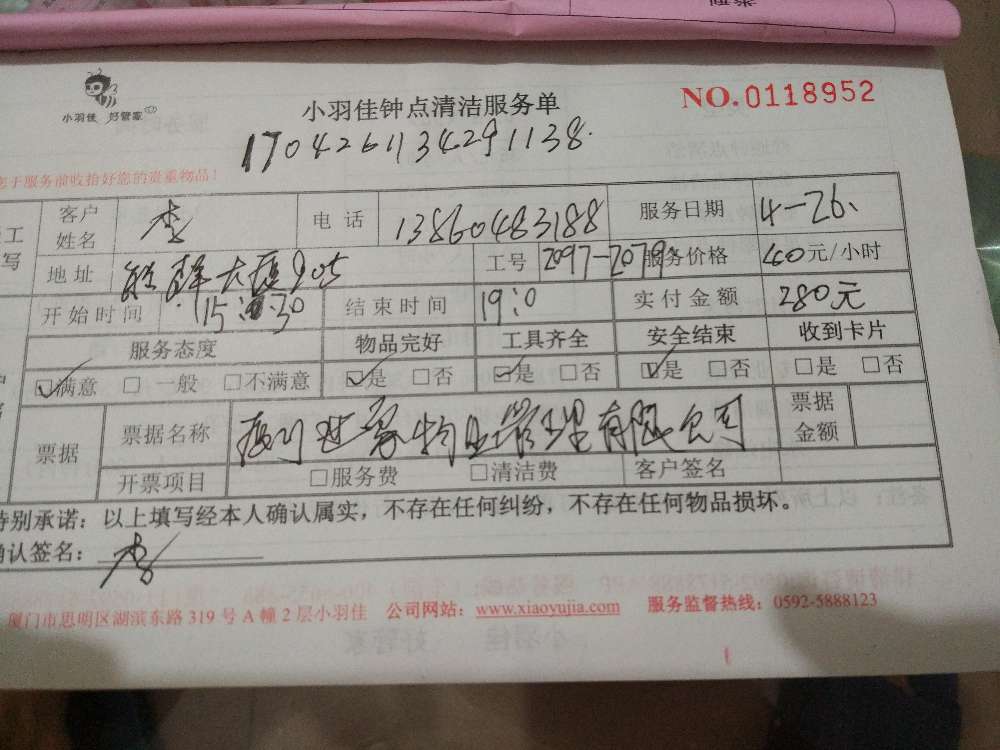 小羽佳 好管家
小羽佳钟点清洁服务单
NO.0118952
1704261134291138.
您于服务前收拾好您的贵重物品!
工 客户姓名 李 电话 13860483188 服务日期 4-26.
写 地址 大厦905 工号 2097-2079 服务价格 40元/小时
开始时间 15:30 结束时间 19:0 实付金额 280元
服务态度 物品完好 工具齐全 安全结束 收到卡片
☑满意 □一般 □不满意 ☑是 □否 ☑是 □否 ☑是 □否 □是 □否
票据 票据名称 物业管理有限公司 票据金额
开票项目 □服务费 □清洁费 客户签名
特别承诺:以上填写经本人确认属实,不存在任何纠纷,不存在任何物品损坏。
确认签名: 李
厦门市思明区湖滨东路319号A幢2层小羽佳 公司网站:www.xiaoyujia.com 服务监督热线:0592-5888123